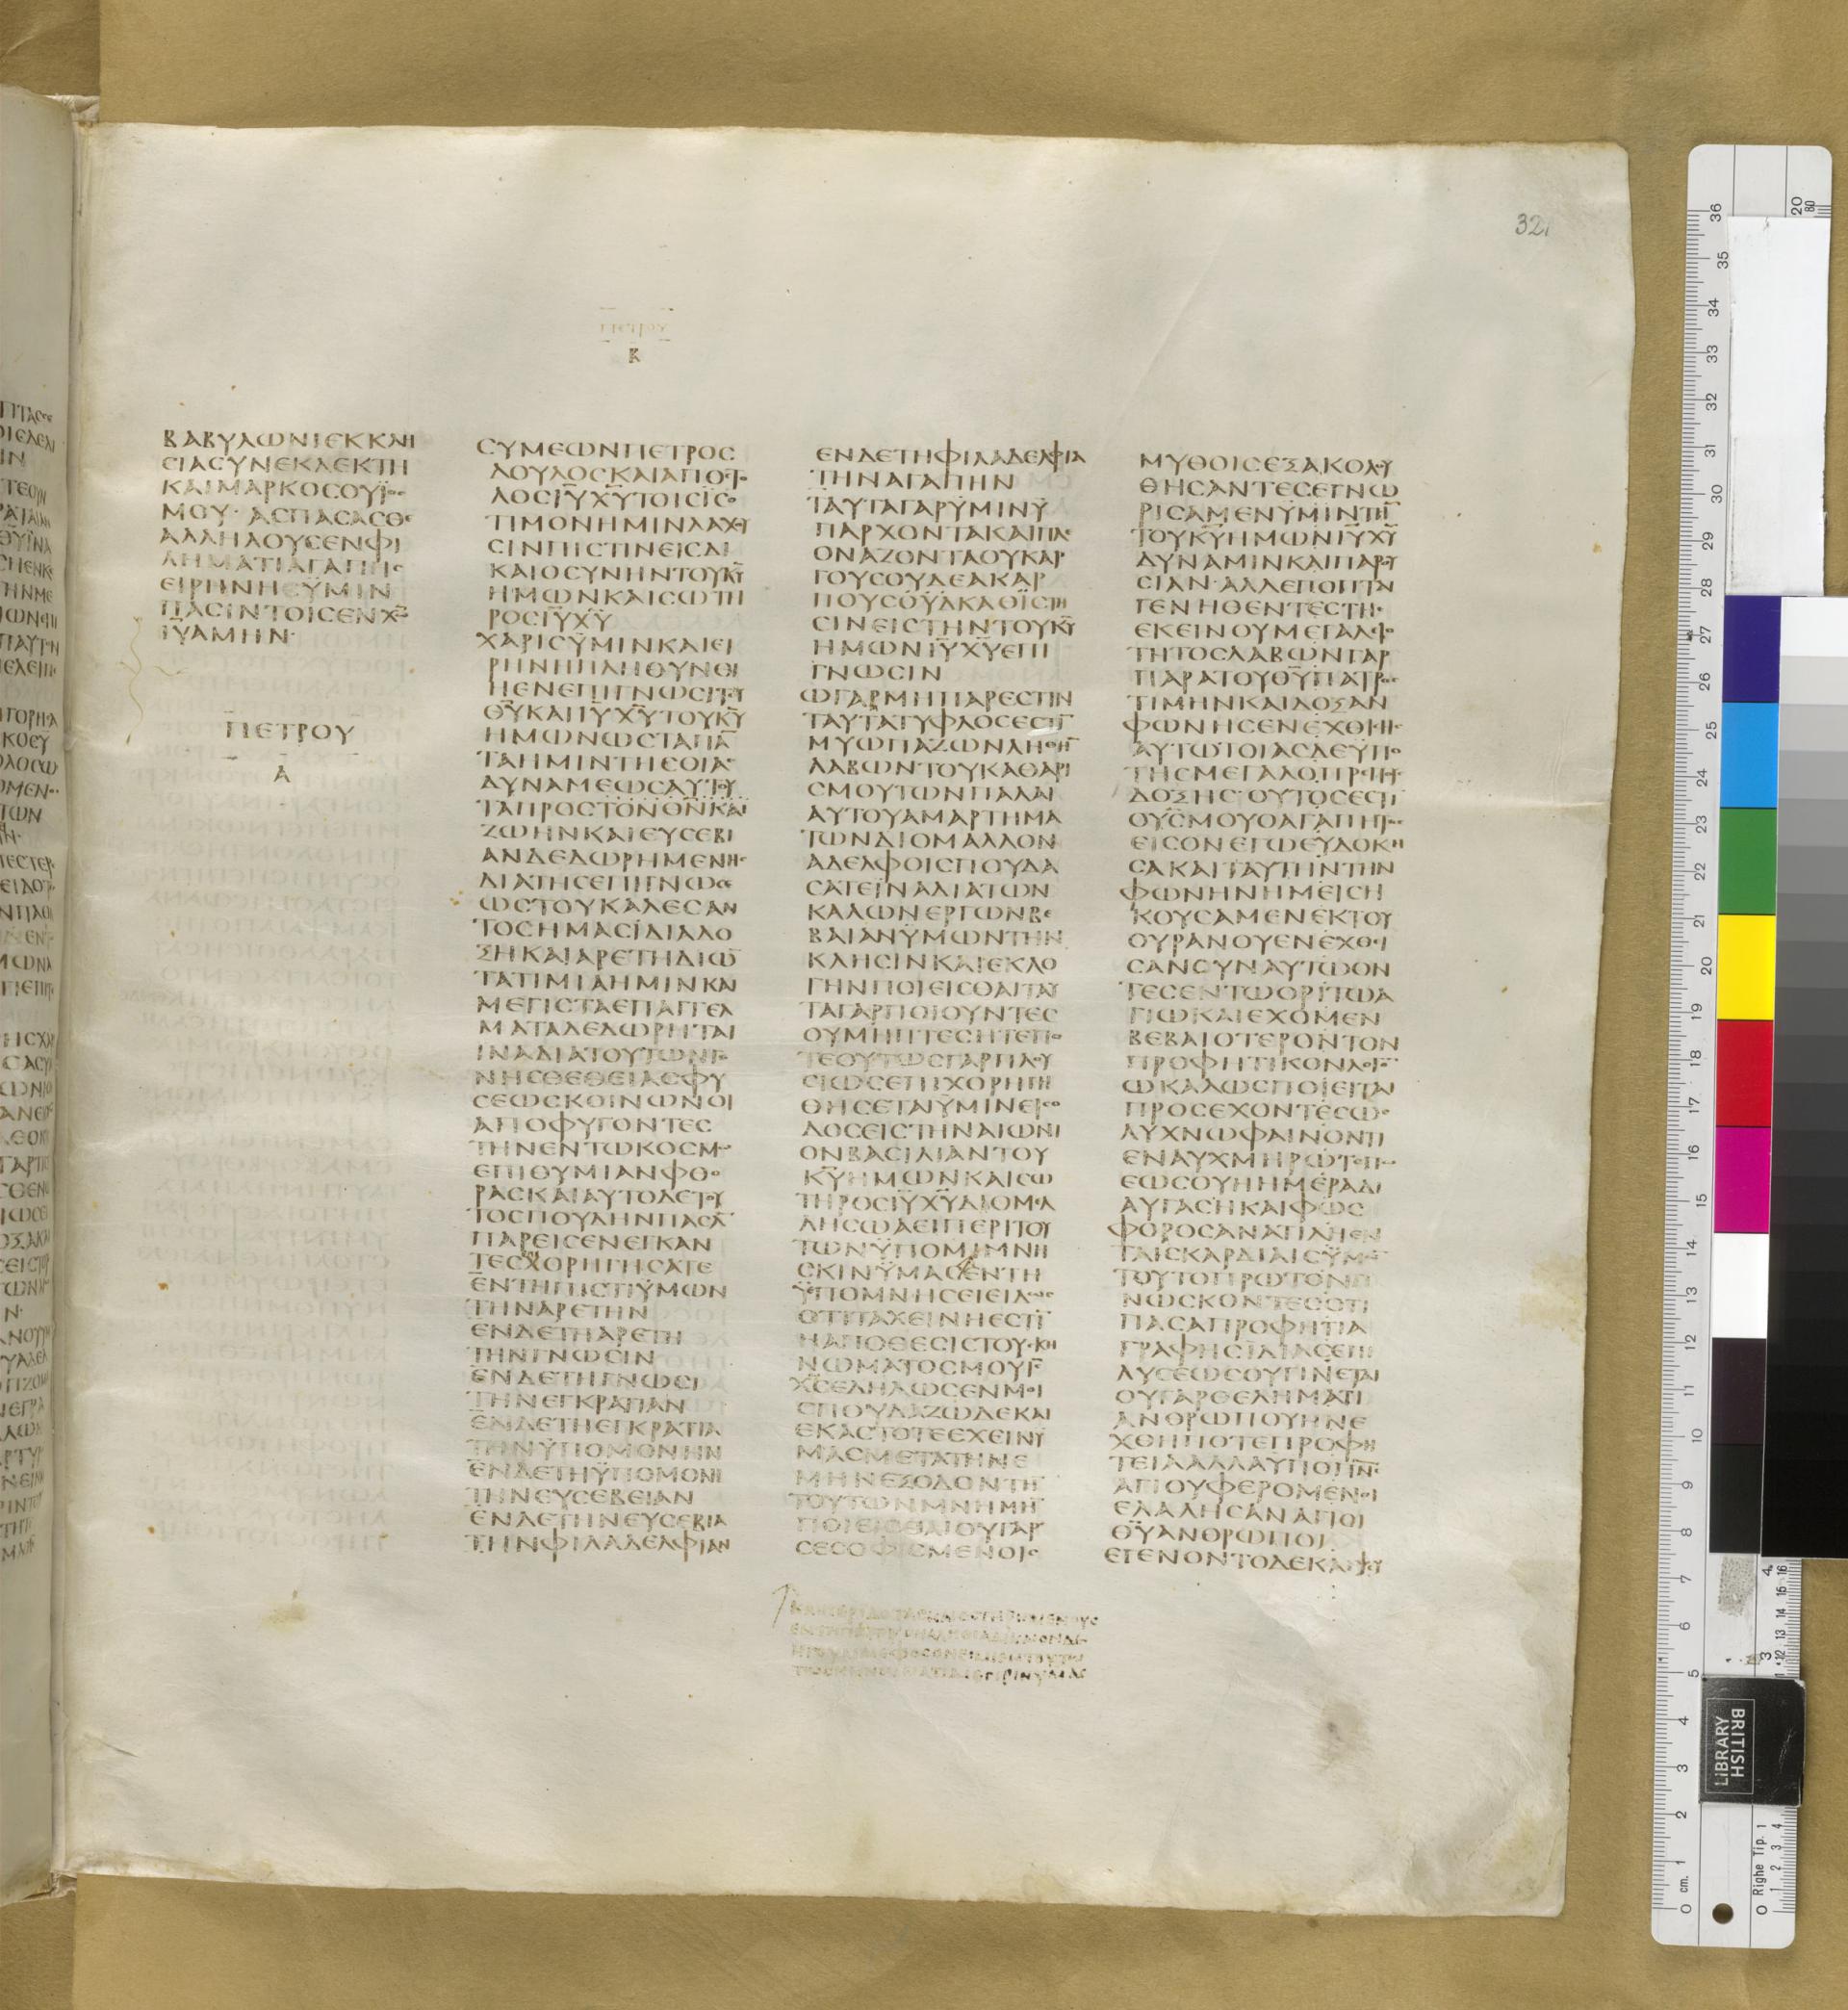 32
ΠΕΤΡΟΥ
Β
ΒΑΒΥΛΩΝΙΕΚΚΛΗ
ϹΙΑϹΥΝΕΚΛΕΚΤΗ
ΚΑΙΜΑΡΚΟϹΟΥΪΟϹ
ΜΟΥ· ΑϹΠΑϹΑϹΘΕ
ΑΛΛΗΛΟΥϹΕΝΦΙ
ΛΗΜΑΤΙΑΓΑΠΗϹ
ΕΙΡΗΝΗΕΥΜΙΝ
ΠΑϹΙΝΤΟΙϹΕΝΧΩ
ΙΥΑΜΗΝ·
ΠΕΤΡΟΥ
Α
ϹΥΜΕΩΝΠΕΤΡΟϹ
ΔΟΥΛΟϹΚΑΙΑΠΟϹΤΟ
ΛΟϹΙΥΧΥΤΟΙϹΙϹΟ
ΤΙΜΟΝΗΜΙΝΛΑΧΟΥ
ϹΙΝΠΙϹΤΙΝΕΙϹΔΙ
ΚΑΙΟϹΥΝΗΝΤΟΥΚΥ
ΗΜΩΝΚΑΙϹΩΤΗ
ΡΟϹΙΥΧΥ
ΧΑΡΙϹΥΜΙΝΚΑΙΕΙ
ΡΗΝΗΠΛΗΘΥΝΘΙ
ΗΕΝΕΠΙΓΝΩϹΙΤΟΥ
ΘΥΚΑΙΙΥΧΥΤΟΥΚΥ
ΗΜΩΝΩϹΤΑΠΑ̅
ΤΑΗΜΙΝΤΗϹΘΙΑϹ
ΔΥΝΑΜΕΩϹΑΥΤΟΥ
ΤΑΠΡΟϹΤΟΝΘΝΚΑΙ
ΖΩΗΝΚΑΙΕΥϹΕΒΙ
ΑΝΔΕΔΩΡΗΜΕΝΗϹ
ΔΙΑΤΗϹΕΠΙΓΝΩϹΕ
ΩϹΤΟΥΚΑΛΕϹΑΝ
ΤΟϹΗΜΑϹΙΔΙΑΔΟ
ΞΗΚΑΙΑΡΕΤΗΔΙΩ̅
ΤΑΤΙΜΙΑΗΜΙΝΚΑΙ
ΜΕΓΙϹΤΑΕΠΑΓΓΕΛ
ΜΑΤΑΔΕΔΩΡΗΤΑΙ
ΙΝΑΔΙΑΤΟΥΤΩΝΓΕ
ΝΗϹΘΕΘΕΙΑϹΦΥ
ϹΕΩϹΚΟΙΝΩΝΟΙ
ΑΠΟΦΥΓΟΝΤΕϹ
ΤΗΝΕΝΤΩΚΟϹΜΩ
ΕΠΙΘΥΜΙΑΝΦΘΟ
ΡΑϹΚΑΙΑΥΤΟΔΕΤΟΥ
ΤΟϹΠΟΥΔΗΝΠΑϹΑ̅
ΠΑΡΕΙϹΕΝΕΓΚΑΝ
ΤΕϹΧΟΡΗΓΗϹΑΤΕ
ΕΝΤΗΠΙϹΤΙΥΜΩΝ
ΤΗΝΑΡΕΤΗΝ
ΕΝΔΕΤΗΑΡΕΤΗ
ΤΗΝΓΝΩϹΙΝ
ΕΝΔΕΤΗΓΝΩϹΙ
ΤΗΝΕΓΚΡΑΤΙΑΝ
ΕΝΔΕΤΗΕΓΚΡΑΤΙΑ
ΤΗΝΫΠΟΜΟΝΗΝ
ΕΝΔΕΤΗΫΠΟΜΟΝΙ
ΤΗΝΕΥϹΕΒΕΙΑΝ
ΕΝΔΕΤΗΝΕΥϹΕΒΙΑ
ΤΗΝΦΙΛΑΔΕΛΦΙΑΝ
ΕΝΔΕΤΗΦΙΛΑΔΕΛΦΙΑ
ΤΗΝΑΓΑΠΗΝ
ΤΑΥΤΑΓΑΡΫΜΙΝΫ
ΠΑΡΧΟΝΤΑΚΑΙΠΛΕ
ΟΝΑΖΟΝΤΑΟΥΚΑΡ
ΓΟΥϹΟΥΔΕΑΚΑΡ
ΠΟΥϹΟΫΔΚΑΘΪϹΤΗ
ϹΙΝΕΙϹΤΗΝΤΟΥΚΥ
ΗΜΩΝΙΥΧΥΕΠΙ
ΓΝΩϹΙΝ
ΩΓΑΡΜΗΠΑΡΕϹΤΙΝ
ΤΑΥΤΑΤΥΦΛΟϹΕϹΤΙ̅
ΜΥΩΠΑΖΩΝΛΗΘΗ̅
ΛΑΒΩΝΤΟΥΚΑΘΑΡΙ
ϹΜΟΥΤΩΝΠΑΛΑΙ
ΑΥΤΟΥΑΜΑΡΤΗΜΑ
ΤΩΝΔΙΟΜΑΛΛΟΝ
ΑΔΕΛΦΟΙϹΠΟΥΔΑ
ϹΑΤΕΪΝΑΔΙΑΤΩΝ
ΚΑΛΩΝΕΡΓΩΝΒΕ
ΒΑΙΑΝΫΜΩΝΤΗΝ
ΚΛΗϹΙΝΚΑΙΕΚΛΟ
ΓΗΝΠΟΙΕΙϹΘΑΙΤΑΥ
ΤΑΓΑΡΠΟΙΟΥΝΤΕϹ
ΟΥΜΗΠΤΕϹΗΤΕΠΟ
ΤΕΟΥΤΩϹΓΑΡΠΛΟΥ
ϹΙΩϹΕΠΙΧΟΡΗΓΗ
ΘΗϹΕΤΑΙΫΜΙΝΕΙϹΟ
ΔΟϹΕΙϹΤΗΝΑΙΩΝΙ
ΟΝΒΑϹΙΛΙΑΝΤΟΥ
ΚΥΗΜΩΝΚΑΙϹΩ
ΤΗΡΟϹΙΥΧΥΔΙΟΜΕΛ
ΛΗϹΩΑΕΙΠΕΡΙΤΟΥ
ΤΩΝΫΠΟΜΙΜΝΗ
ϹΚΙΝΫΜΑϹΕΝΤΗ
ΟΤΙΤΑΧΕΙΝΗΕϹΤΙ̅
ΗΑΠΟΘΕϹΙϹΤΟΥϹΚΗ
ΝΩΜΑΤΟϹΜΟΥΚ
ΧϹΕΔΗΛΩϹΕΝΜΟΙ
ϹΠΟΥΔΑΖΩΔΕΚΑΙ
ΕΚΑϹΤΟΤΕΕΧΕΙΝΫ
ΜΑϹΜΕΤΑΤΗΝΕ
ΜΗΝΕΞΟΔΟΝΤΗ̅
ΤΟΥΤΩΝΜΝΗΜΗ̅
ΠΟΙΕΙϹΘΑΙΟΥΓΑΡ
ϹΕϹΟΦΙϹΜΕΝΟΙϹ
ΜΥΘΟΙϹΕΞΑΚΟΛΟΥ
ΘΗϹΑΝΤΕϹΕΓΝΩ
ΡΙϹΑΜΕΝΥΜΙΝΤΗ̅
ΤΟΥΚΥΗΜΩΝΙΥΧΥ
ΔΥΝΑΜΙΝΚΑΙΠΑΡΟΥ
ϹΙΑΝ·ΑΛΛΕΠΟΠΤΑΙ
ΓΕΝΗΘΕΝΤΕϹΤΗϹ
ΕΚΕΙΝΟΥΜΕΓΑΛΙΟ
ΤΗΤΟϹΛΑΒΩΝΓΑΡ
ΠΑΡΑΤΟΥΘΥΠΑΤΡΟϹ
ΤΙΜΗΝΚΑΙΔΟΞΑΝ
ΦΩΝΗϹΕΝΕΧΘΙϹΗϹ
ΑΥΤΩΤΟΙΑϹΔΕΫΠΟ
ΤΗϹΜΕΓΑΛΟΠΡΕΠΗϹ
ΔΟΞΗϹ·ΟΥΤΟϹΕϹΤΙ
ΟΥϹΜΟΥΟΑΓΑΠΗΤΟϹ
ΕΙϹΟΝΕΓΩΕΥΔΟΚΗ
ϹΑΚΑΙΤΑΥΤΗΝΤΗΝ
ΦΩΝΗΝΗΜΕΙϹΗ
ΚΟΥϹΑΜΕΝΕΚΤΟΥ
ΟΥΡΑΝΟΥΕΝΕΧΘΙ
ϹΑΝϹΥΝΑΥΤΩΟΝ
ΤΕϹΕΝΤΩΟΡΙΤΩΑ
ΓΙΩΚΑΙΕΧΟΜΕΝ
ΒΕΒΑΙΟΤΕΡΟΝΤΟΝ
ΠΡΟΦΗΤΙΚΟΝΛΟΓΟ̅
ΩΚΑΛΩϹΠΟΙΕΙΤΑΙ
ΠΡΟϹΕΧΟΝΤΕϹΩϹ
ΛΥΧΝΩΦΑΙΝΟΝΤΙ
ΕΝΑΥΧΜΗΡΩΤΟΠΩ
ΕΩϹΟΥΗΗΜΕΡΑΔΙ
ΑΥΓΑϹΗΚΑΙΦΩϹ
ΦΟΡΟϹΑΝΑΤΙΛΗΕΝ
ΤΑΙϹΚΑΡΔΙΑΙϹΫΜΩ
ΤΟΥΤΟΠΡΩΤΟΝΓΙ
ΝΩϹΚΟΝΤΕϹΟΤΙ
ΠΑϹΑΠΡΟΦΗΤΙΑ
ΓΡΑΦΗϹΙΔΙΑϹΕΠΙ
ΛΥϹΕΩϹΟΥΓΙΝΕΤΑΙ
ΟΥΓΑΡΘΕΛΗΜΑΤΙ
ΑΝΘΡΩΠΟΥΗΝΕ
ΧΘΗΠΟΤΕΠΡΟΦΗ
ΤΕΙΑΑΛΛΑΥΠΟΠΝϹ
ΑΓΙΟΥΦΕΡΟΜΕΝΟΙ
ΕΛΑΛΗϹΑΝΑΓΙΟΙ
ΘΥΑΝΘΡΩΠΟΙ
ΕΓΕΝΟΝΤΟΔΕΚΑΙΨΕΥ
BRITISH
LIBRARY